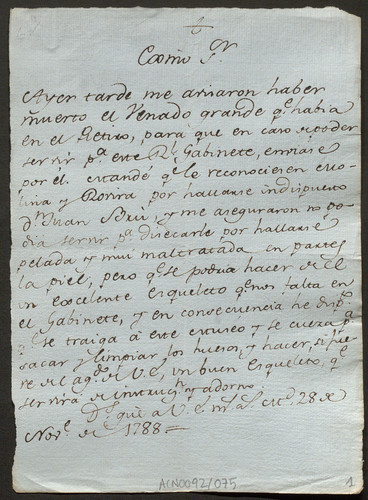 Exmo Sr.
Ayer tarde me avisaron haber
muerto el Venado grande qe había
en el Retiro, para que en caso de poder
servir pa este Rl. Gabinete, enviase
por él. mandé qe lo reconociesen Mo-
lina y Rovira por hallarse indispuesto
Dn Juan Brú, y me aseguraron no po-
dia servir pa disecarle por hallarse
pelada y mui maltratada en partes
la piel, pero qe se podria hacer de él
un excelente Esqueleto qe nos falta en
el Gabinete, y en consecuencia he disp.to
se traiga á este Museo y se cueza pa
sacar y limpiar los huesos, y hacer, si fue-
re del ag.do de V.E. un buen Esqueleto, qe
servirá de instrucn. y adorno.
Ds. gue a V.E. ms. as. 28 de
Nov.e de 1788 =
ACN0092/075
1